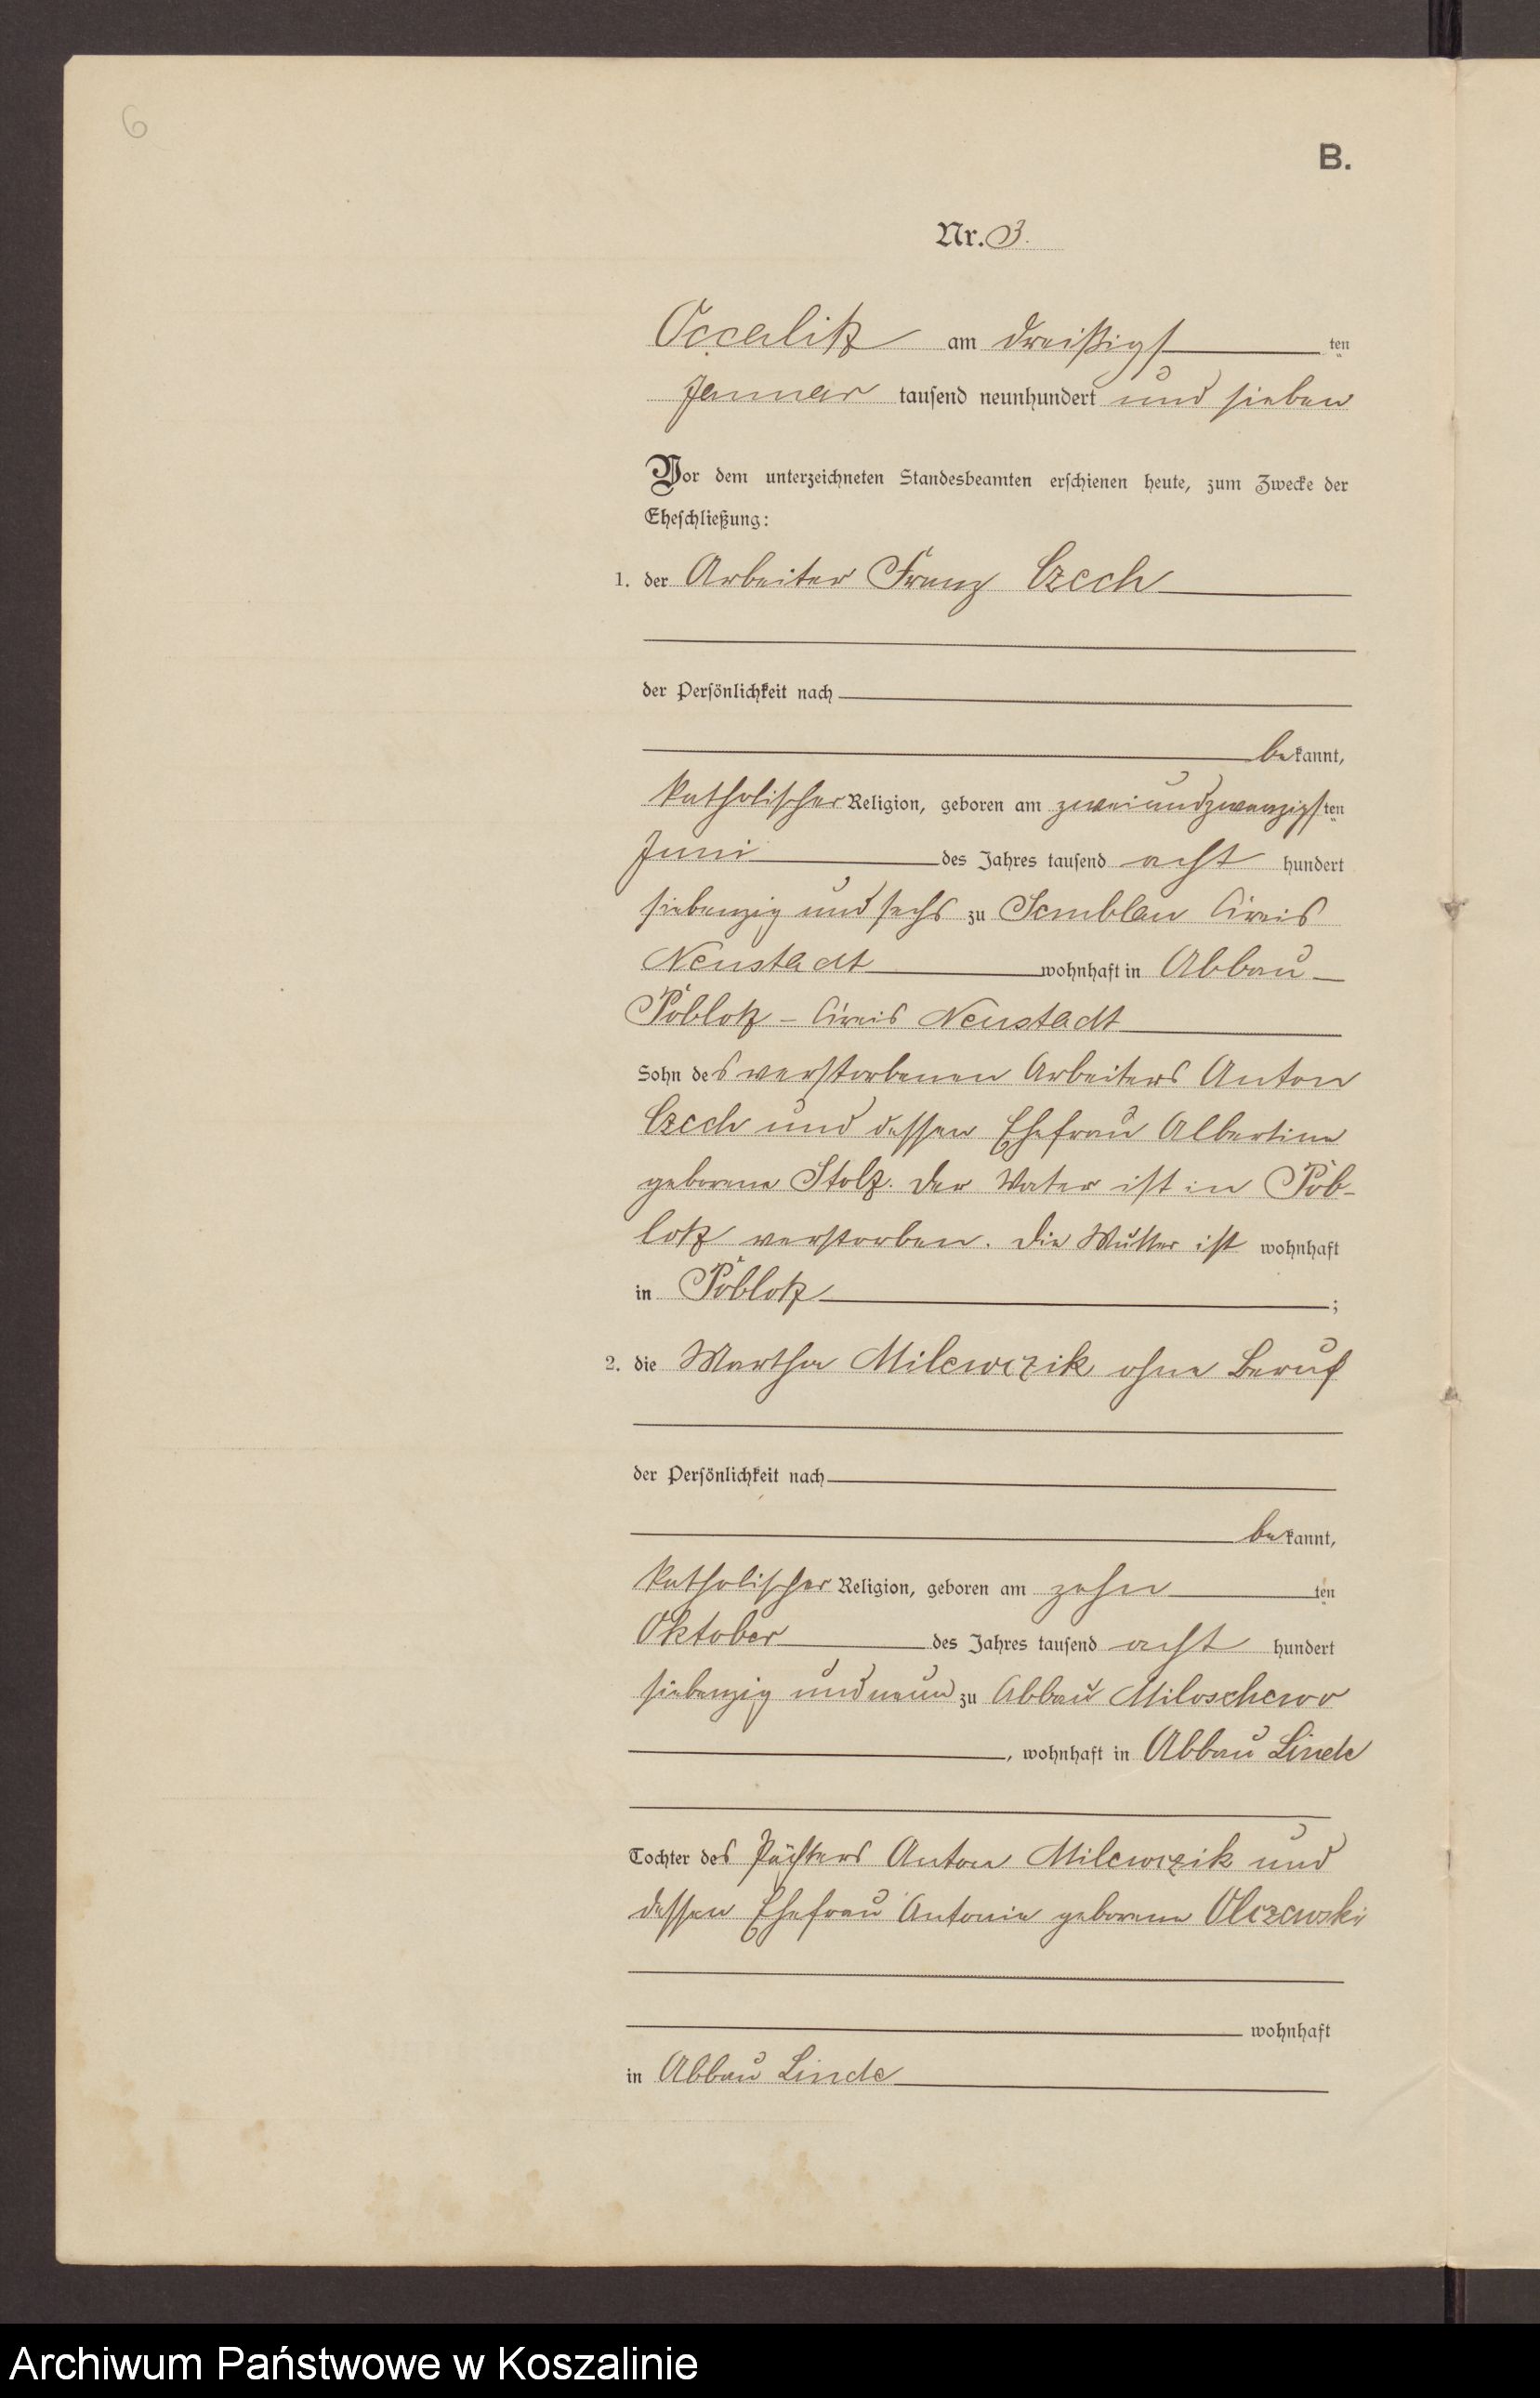 6
B.
Nr. 3.
Occalitz am dreißigsten
Januar tausend neunhundert und sieben
Vor dem unterzeichneten Standesbeamten erschienen heute, zum Zwecke der
Eheschließung:
1. der Arbeiter Franz Czech
der Persönlichkeit nach
bekannt,
katholischer Religion, geboren am zweiundzwanzigsten
Juni des Jahres tausend acht hundert
siebenzig und sechs zu Semblau Kreis
Neustadt wohnhaft in Abbau
Poblotz - Kreis Neustadt
Sohn des verstorbenen Arbeiters Anton
Czech und dessen Ehefrau Albertine
geborene Stolz. Der Vater ist in Pob-
lotz verstorben. Die Mutter ist wohnhaft
in Poblotz;
2. die Martha Milewczik ohne Beruf
der Persönlichkeit nach
bekannt,
katholischer Religion, geboren am zehnten
Oktober des Jahres tausend acht hundert
siebenzig und neun zu Abbau Miloschewo
, wohnhaft in Abbau Linde
Tochter des Pächters Anton Milewczik und
dessen Ehefrau Antonie geborene Olczewski
wohnhaft
in Abbau Linde
Archiwum Państwowe w Koszalinie